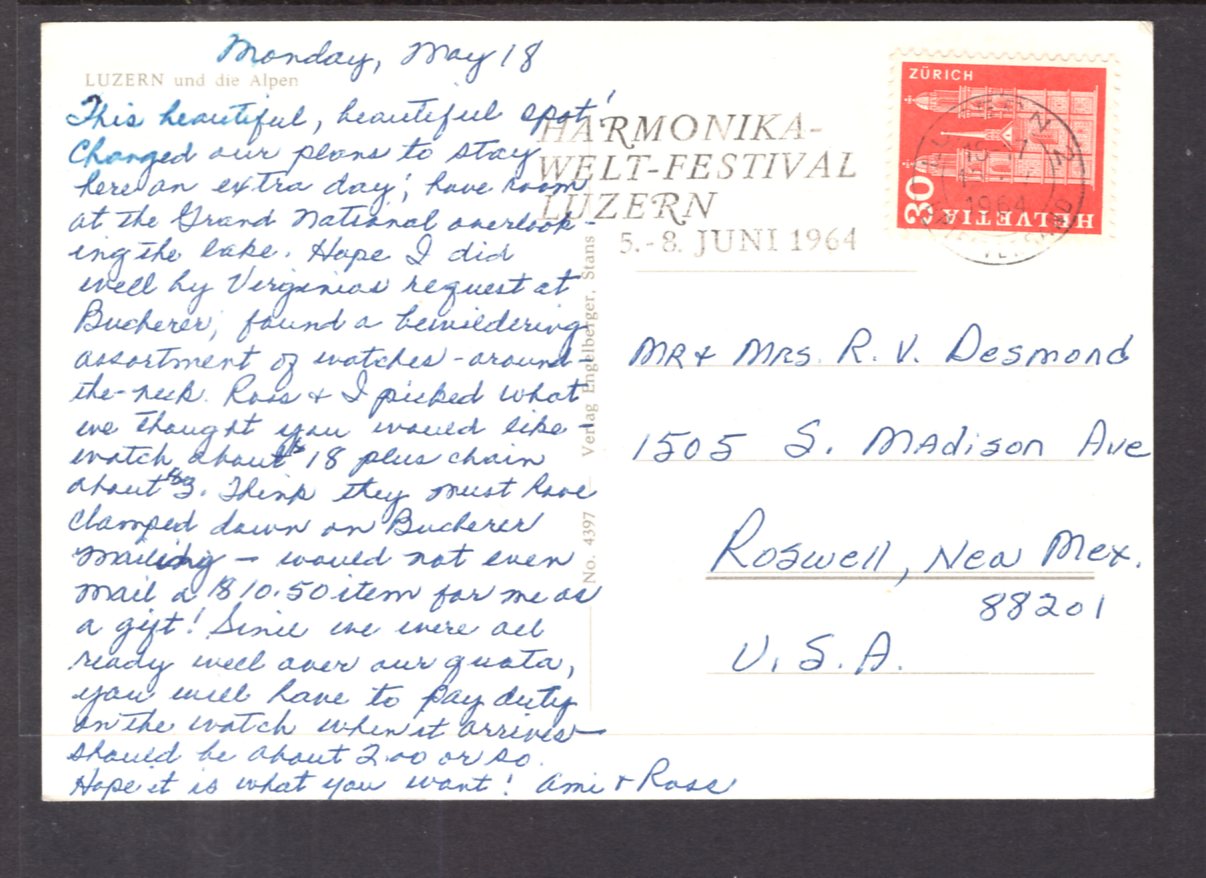 Monday, May 18
LUZERN und die Alpen
This beautiful, beautiful spot!
Changed our plans to stay
here an extra day; have room
at the Grand National overlook-
ing the lake. Hope I did
well by Virginias request at
Bucherer; found a bewildering
assortment of watches - around-
the-neck. Ross + I picked what
we thought you would like -
watch about $18 plus chain
about $3. Think they must have
clamped down on Bucherer
mailing - would not even
mail a $10.50 item for me as
a gift! Since we were all
ready well over our quota,
you will have to pay duty
on the watch when it arrives -
should be about 2.00 or so.
Hope it is what you want! Ami + Ross
No. 4397 Verlag Engelberger, Stans
HARMONIKA-
WELT-FESTIVAL
LUZERN
5.-8. JUNI 1964
ZÜRICH
30
HELVETIA
1964
Mr + Mrs. R. V. Desmond
1505 S. Madison Ave
Roswell, New Mex.
88201
U.S.A.